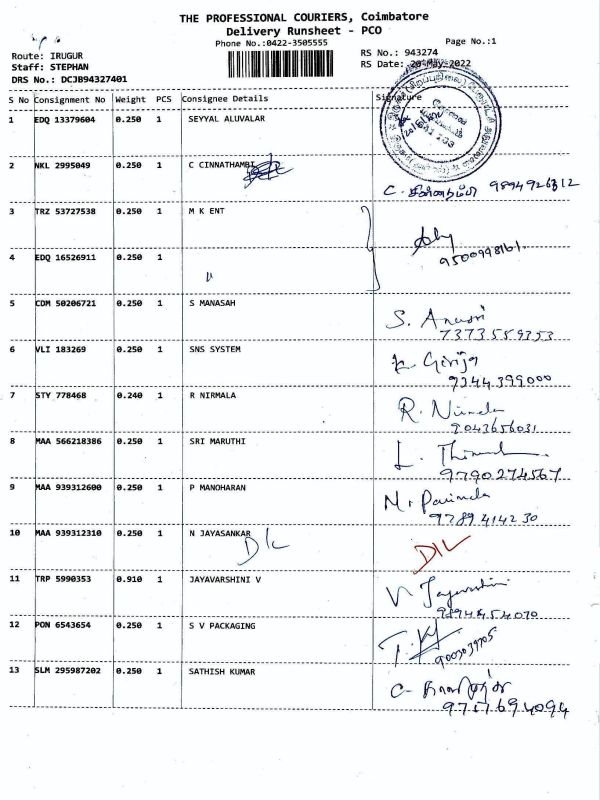 THE PROFESSIONAL COURIERS, Coimbatore
Delivery Runsheet - PCO
Phone No.:0422-3505555
Page No.:1
Route: IRUGUR
Staff: STEPHAN
DRS No.: DCJB94327401
RS No.: 943274
RS Date: 20-May-2022
S No Consignment No Weight PCS Consignee Details Signature
1 EDQ 13379604 0.250 1 SEYYAL ALUVALAR
2 NKL 2995049 0.250 1 C CINNATHAMBI
C. சின்னதம்பி 9894926312
3 TRZ 53727538 0.250 1 M K ENT
4 EDQ 16526911 0.250 1
"
9500998161
5 CDM 50206721 0.250 1 S MANASAH S. Anusri
7373559353
6 VLI 183269 0.250 1 SNS SYSTEM K. Girija
9344399000
7 STY 778468 0.240 1 R NIRMALA R. Nirmala
9043656031
8 MAA 566218386 0.250 1 SRI MARUTHI
9790274567
9 MAA 939312600 0.250 1 P MANOHARAN M. Parimala
9789414230
10 MAA 939312310 0.250 1 N JAYASANKAR
D/L D/L
11 TRP 5990353 0.910 1 JAYAVARSHINI V V Jayavarshini
9894454070
12 PON 6543654 0.250 1 S V PACKAGING
13 SLM 295987202 0.250 1 SATHISH KUMAR
9751694094